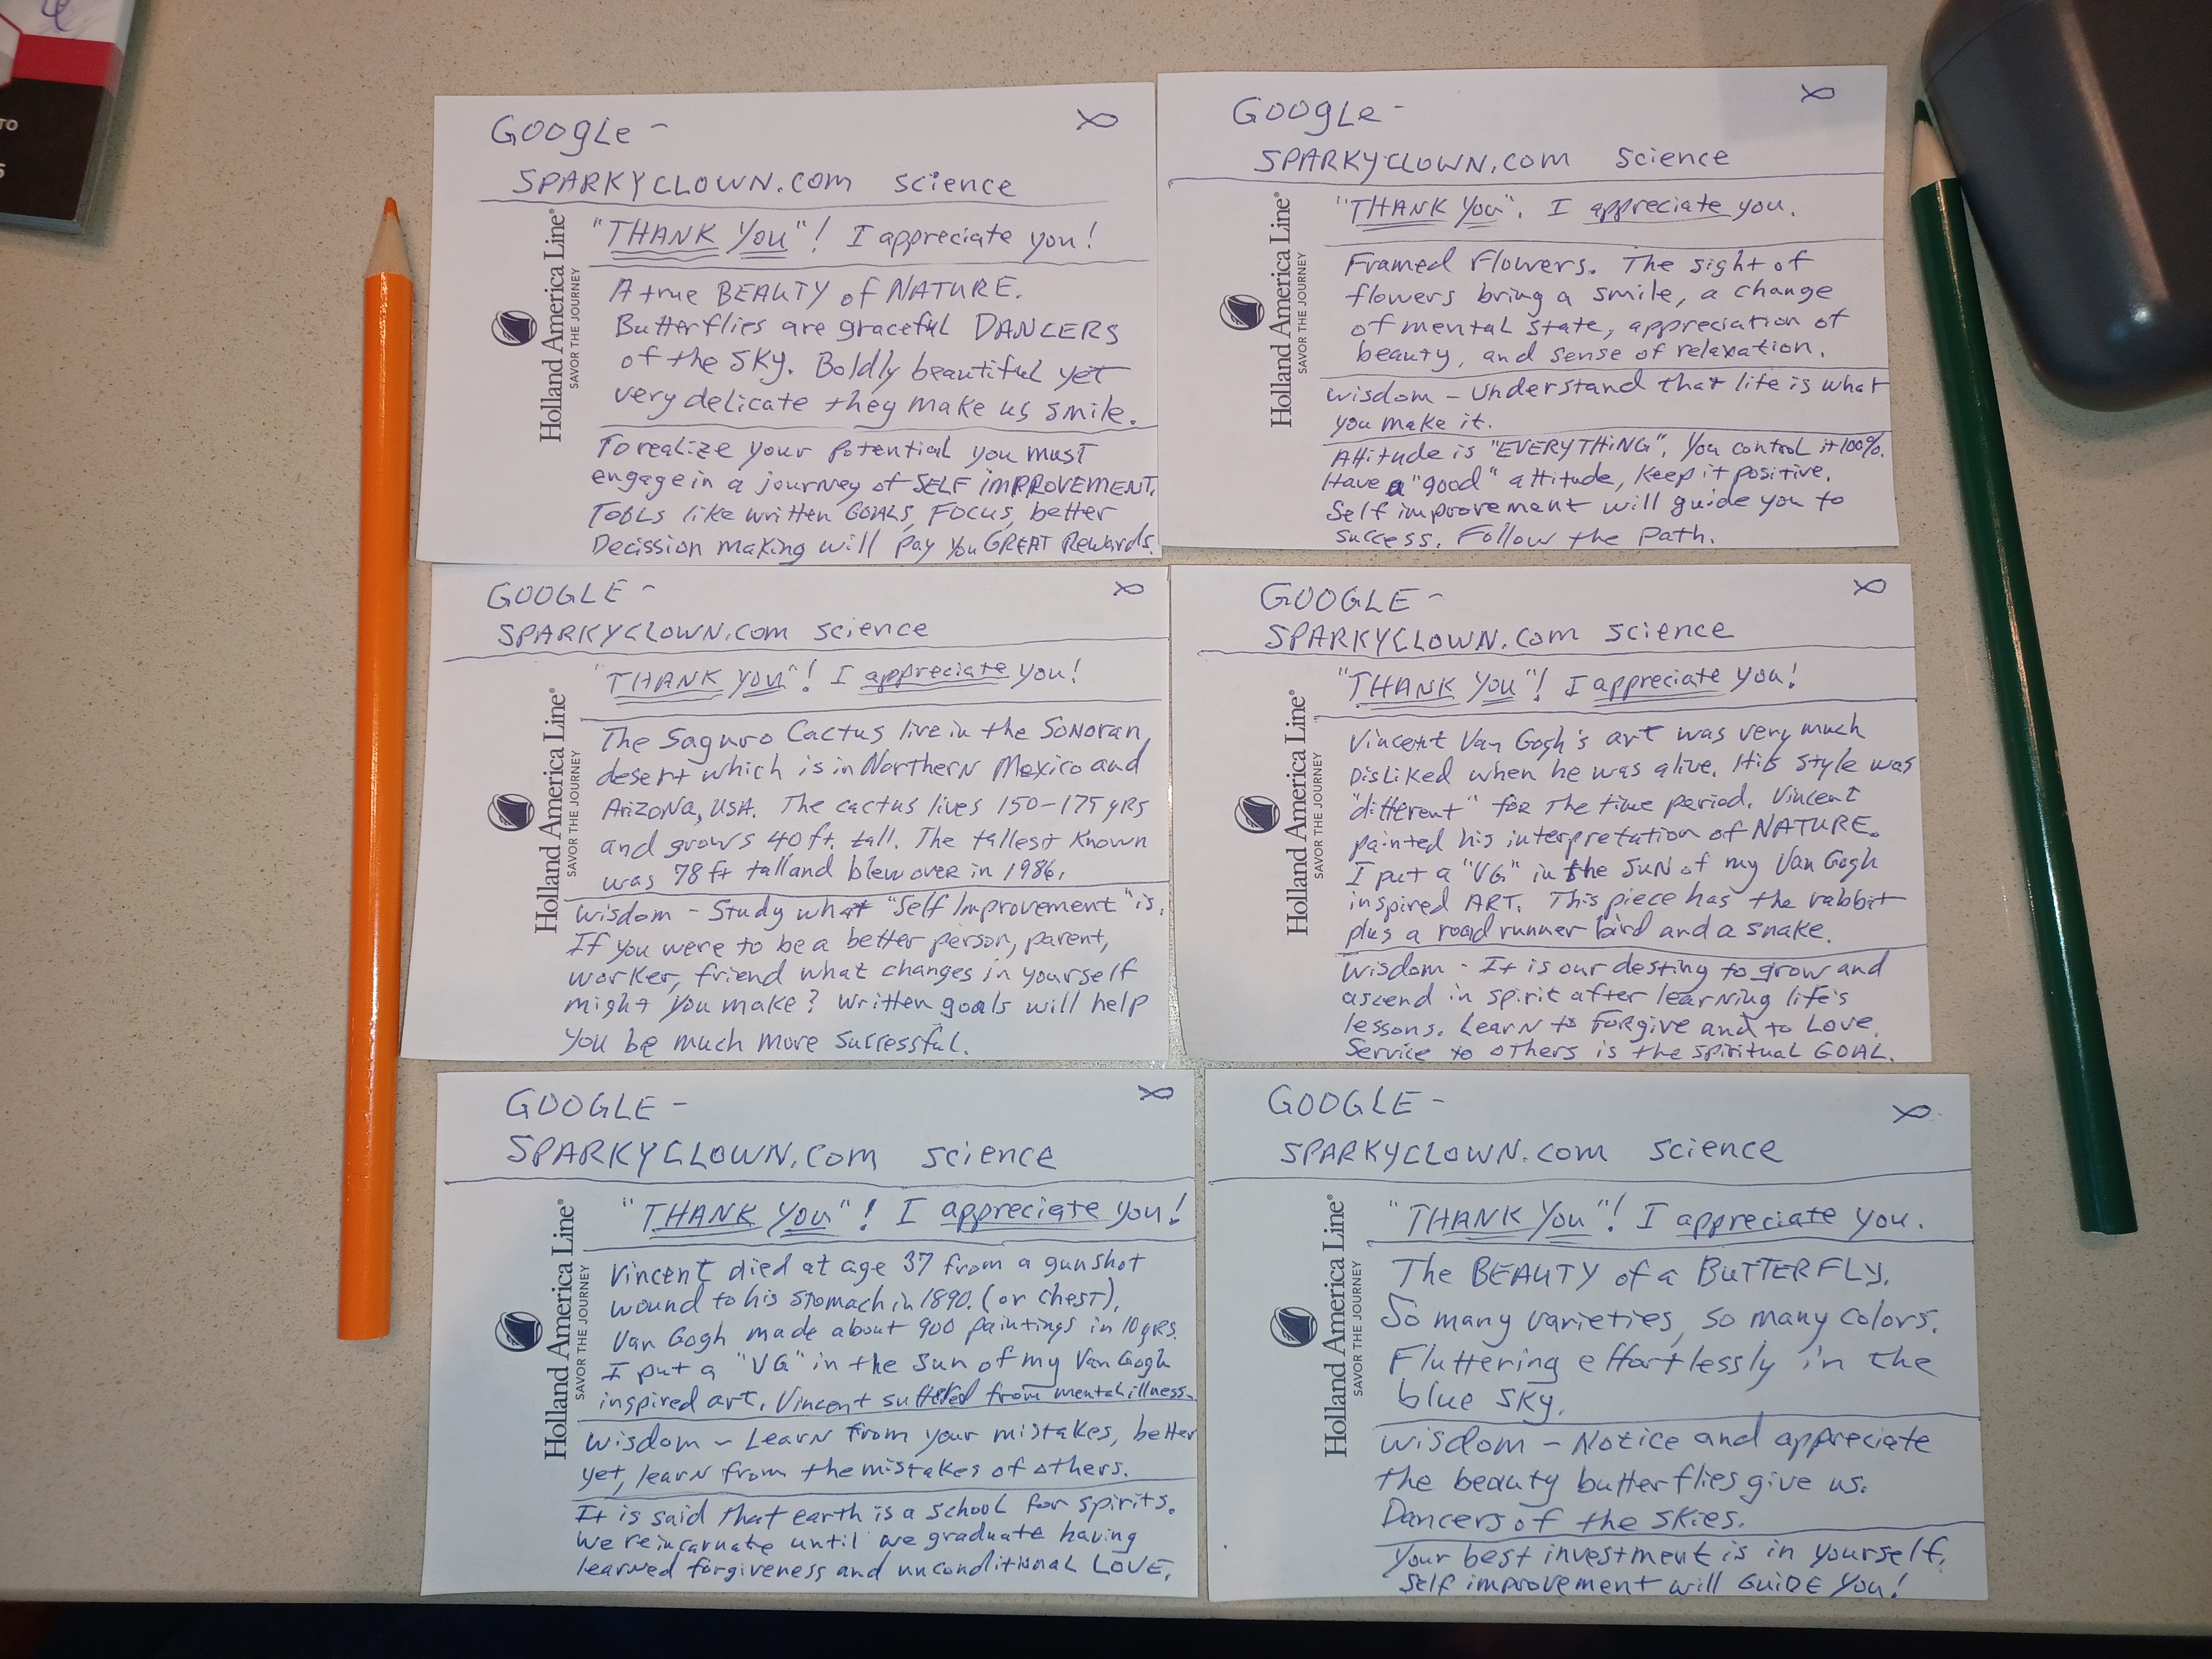 TO
S
GOOgLe -
SPARKYCLOWN.COM science
"THANK YOU"! I appreciate you!
Holland America Line®
SAVOR THE JOURNEY
A true BEAUTY of NATURE.
Butterflies are graceful DANCERS
of the SKY. Boldly beautiful yet
very delicate they make us smile.
To realize your potential you must
engage in a journey of SELF IMPROVEMENT.
TOOLs like written GOALS, FOCUS, better
Decission making will pay you GREAT Rewards.
GOOgLe -
SPARKYCLOWN.COM science
"THANK YOU". I appreciate you.
Holland America Line®
SAVOR THE JOURNEY
Framed Flowers. The sight of
flowers bring a smile, a change
of mental state, appreciation of
beauty, and sense of relaxation.
wisdom - Understand that life is what
you make it.
Attitude is "EVERYTHING". You control it 100%.
Have a "good" attitude, keep it positive.
Self improvement will guide you to
success. Follow the path.
GOOGLE -
SPARKYCLOWN.COM science
"THANK YOU"! I appreciate you!
Holland America Line®
SAVOR THE JOURNEY
The Saguro Cactus live in the SONORAN
desert which is in Northern Mexico and
ARIZONA, USA. The cactus lives 150-175 yRS
and grows 40 ft. tall. The tallest known
was 78 ft tall and blew over in 1986.
wisdom - Study what "Self Improvement" is.
If you were to be a better person, parent,
worker, friend what changes in yourself
might you make? Written goals will help
you be much more successful.
GOOGLE -
SPARKYCLOWN.COM science
"THANK YOU"! I appreciate you!
Holland America Line®
SAVOR THE JOURNEY
Vincent Van Gogh's art was very much
DISLIKED when he was alive. His style was
"different" for the time period. Vincent
painted his interpretation of NATURE.
I put a "VG" in the SUN of my Van Gogh
inspired ART. This piece has the rabbit
plus a road runner bird and a snake.
wisdom - It is our destiny to grow and
ascend in spirit after learning life's
lessons. Learn to FORgive and to LOVE.
Service to others is the spiritual GOAL.
GOOGLE -
SPARKYCLOWN.COM science
"THANK YOU"! I appreciate you!
Holland America Line®
SAVOR THE JOURNEY
Vincent died at age 37 from a gunshot
wound to his stomach in 1890. (or chest).
Van Gogh made about 900 paintings in 10 yRS.
I put a "VG" in the sun of my Van Gogh
inspired art. Vincent suffered from mental illness.
wisdom - Learn from your mistakes, better
yet, learn from the mistakes of others.
It is said that earth is a school for spirits.
We reincarnate until we graduate having
learned forgiveness and unconditional LOVE.
GOOGLE -
SPARKYCLOWN.COM science
"THANK YOU"! I appreciate you.
Holland America Line®
SAVOR THE JOURNEY
The BEAUTY of a BUTTERFLY.
So many varieties, so many colors.
Fluttering effortlessly in the
blue sky.
wisdom - Notice and appreciate
the beauty butterflies give us.
Dancers of the skies.
Your best investment is in yourself.
Self improvement will GUIDE YOU!